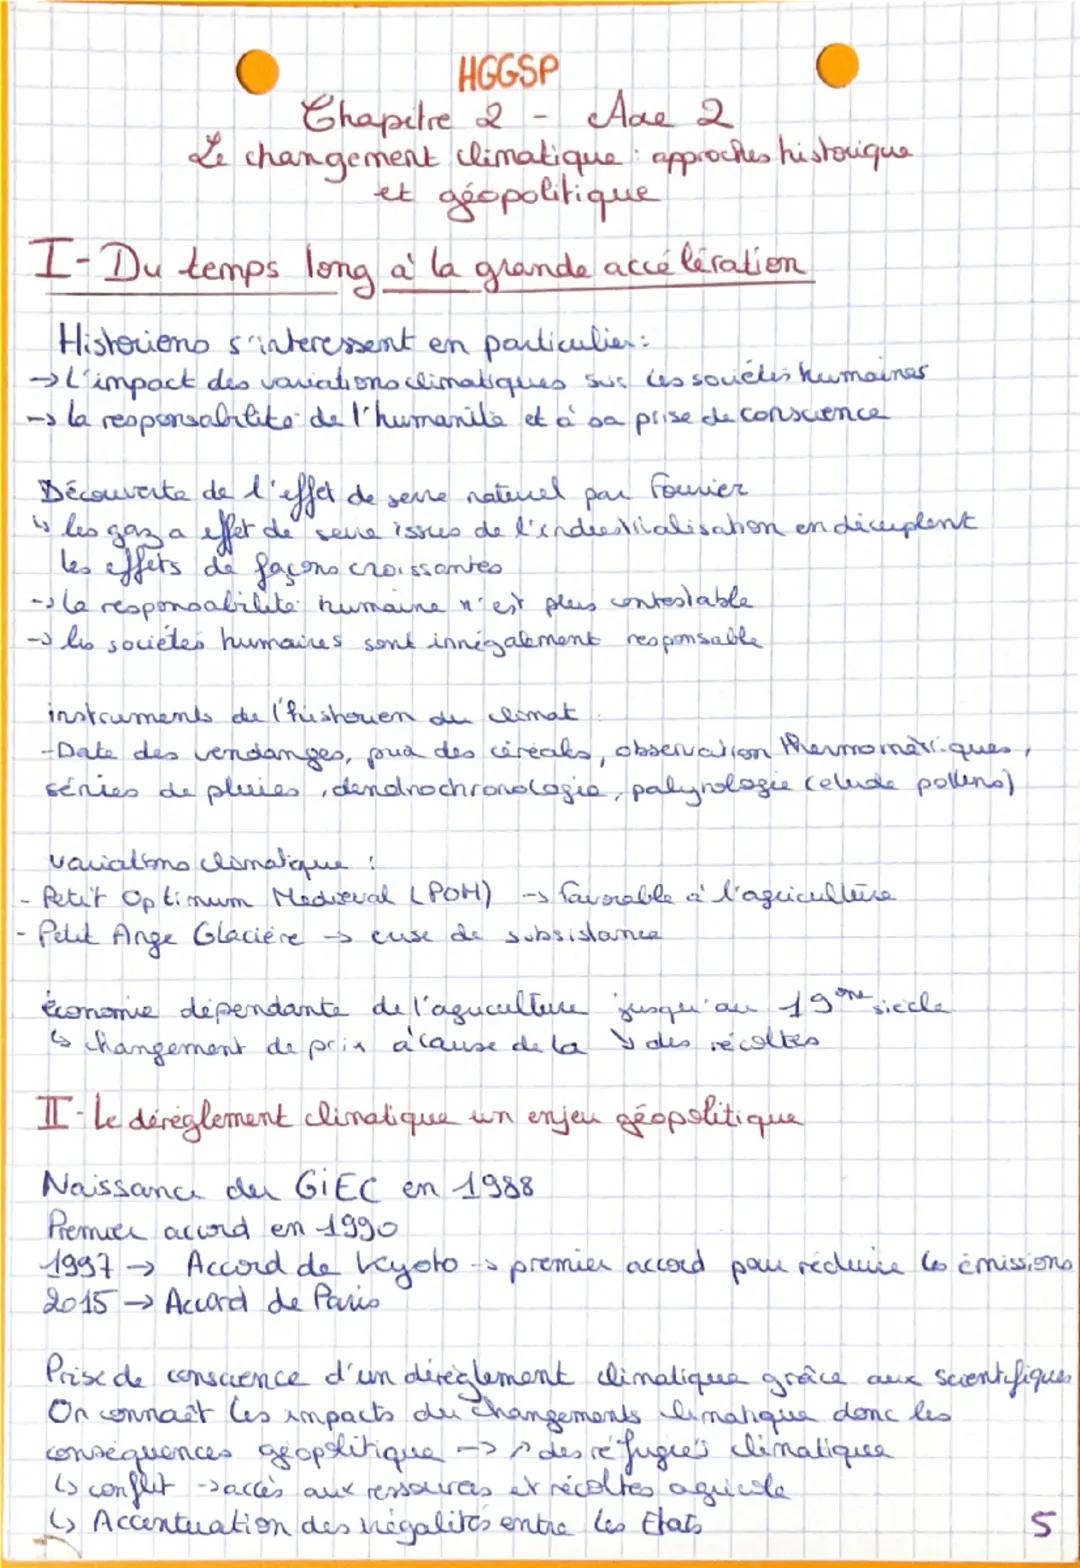 HGGSP
Chapitre 2 - Axe 2
Le changement climatique : approches historique
et géopolitique
I- Du temps long à la grande accélération
Historiens s'interessent en particulier :
→ L'impact des variations climatiques sur les sociétés humaines
→ la responsabilité de l'humanité et à sa prise de conscience
Découverte de l'effet de serre naturel par Fourier
↳ les gaz a effet de serre issues de l'industrialisation en décuplent
les effets de façons croissantes
→ la responsabilité humaine n'est plus contestable
→ les sociétés humaines sont innégalement responsable
instruments de l'historien du climat :
- Date des vendanges, prix des céréales, observation thermomètriques,
séries de pluies, dendrochronologie, palynologie (etude pollens)
variations climatique :
- Petit Optimum Medieval (POM) → favorable à l'agriculture
- Petit Ange Glacière → crise de subsistance
économie dépendante de l'agriculture jusqu'au 19ème siecle
↳ changement de prix à cause de la ↘ des récoltes
II- Le déréglement climatique un enjeu géopolitique
Naissance du GIEC en 1988
Premier accord en 1990
1997 → Accord de Kyoto → premier accord pour réduire les émissions
2015 → Accord de Paris
Prise de conscience d'un déréglement climatique grâce aux scientifiques
On connaît les impacts du changements climatique donc les
conséquences géopolitique → ↗ des réfugiés climatiques
↳ conflit → accès aux ressources et récoltes agricole
↳ Accentuation des inégalités entre les Etats
5